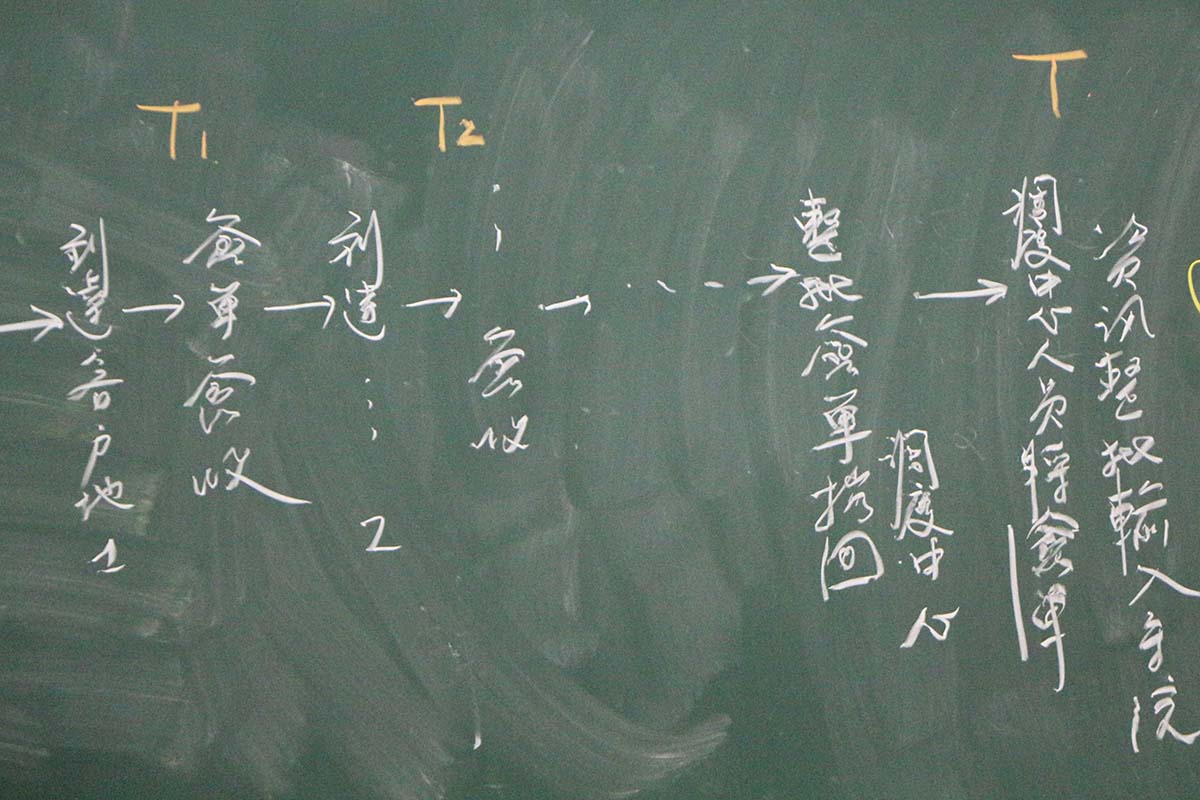 T1
T2
T
到達客戶地1
簽單簽收
到達⋮2
⋮簽收
整批簽單攜回
調度中心
調度中心人員將簽單
資訊整批輸入系統